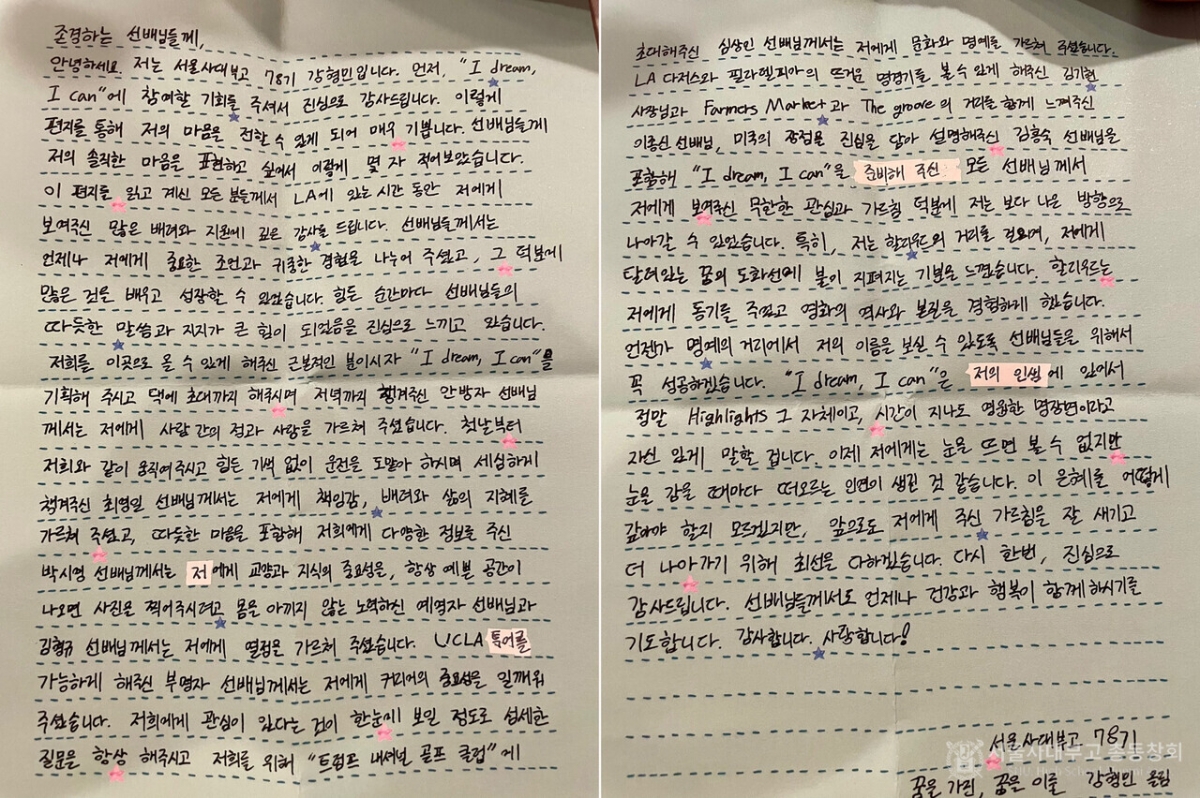 존경하는 선배님들께,
안녕하세요. 저는 서울사대부고 78기 강형민입니다. 먼저, "I dream,
I can"에 참여할 기회를 주셔서 진심으로 감사드립니다. 이렇게
편지를 통해 저의 마음을 전할 수 있게 되어 매우 기쁩니다. 선배님들께
저의 솔직한 마음을 표현하고 싶어서 이렇게 몇 자 적어보았습니다.
이 편지를 읽고 계신 모든 분들께서 LA에 있는 시간 동안 저에게
보여주신 많은 배려와 지원에 깊은 감사를 드립니다. 선배님들께서는
언제나 저에게 중요한 조언과 귀중한 경험을 나누어 주셨고, 그 덕분에
많은 것을 배우고 성장할 수 있었습니다. 힘든 순간마다 선배님들의
따듯한 말씀과 지지가 큰 힘이 되었음을 진심으로 느끼고 있습니다.
저희를 이곳으로 올 수 있게 해주신 근본적인 분이시자 "I dream, I can"를
기획해 주시고 댁에 초대까지 해주시며 저녁까지 챙겨주신 안방자 선배님
께서는 저에게 사람 간의 정과 사랑을 가르쳐 주셨습니다. 첫날부터
저희와 같이 움직여주시고 힘든 기색 없이 운전을 도맡아 하시며 세심하게
챙겨주신 최영일 선배님께서는 저에게 책임감, 배려와 삶의 지혜를
가르쳐 주셨고, 따듯한 마음을 포함해 저희에게 다양한 정보를 주신
박시영 선배님께서는 저에게 교양과 지식의 중요성을, 항상 예쁜 공간이
나오면 사진을 찍어주시려고 몸을 아끼지 않는 노력하신 예영자 선배님과
김형규 선배님께서는 저에게 열정을 가르쳐 주셨습니다. UCLA 투어를
가능하게 해주신 부명자 선배님께서는 저에게 커리어의 중요성을 일깨워
주셨습니다. 저희에게 관심이 있다는 것이 한눈에 보일 정도로 섬세한
질문을 항상 해주시고 저희를 위해 "트럼프 내셔널 골프 클럽"에
초대해주신 심상민 선배님께서는 저에게 문화와 명예를 가르쳐 주셨습니다.
LA 다저스와 필라델피아의 뜨거운 명경기를 볼 수 있게 해주신 김기현
사장님과 Farmers Market과 The groove의 거리를 함께 느껴주신
이종신 선배님, 미국의 장점을 진심을 담아 설명해주신 김홍숙 선배님을
포함해 "I dream, I can"을 준비해 주신 모든 선배님께서
저에게 보여주신 무한한 관심과 가르침 덕분에 저는 보다 나은 방향으로
나아갈 수 있었습니다. 특히, 저는 할리우드의 거리를 걸으며, 저에게
달려있는 꿈의 도화선에 불이 지펴지는 기분을 느꼈습니다. 할리우드는
저에게 동기를 주었고 영화의 역사와 본질을 경험하게 했습니다.
언젠가 명예의 거리에서 저의 이름을 보실 수 있도록 선배님들을 위해서
꼭 성공하겠습니다. "I dream, I can"은 저의 인생에 있어서
정말 Highlights 그 자체이고, 시간이 지나도 영원한 명장면이라고
자신 있게 말할 겁니다. 이제 저에게는 눈을 뜨면 볼 수 없지만
눈을 감을 때마다 떠오르는 인연이 생긴 것 같습니다. 이 은혜를 어떻게
갚아야 할지 모르겠지만, 앞으로도 저에게 주신 가르침을 잘 새기고
더 나아가기 위해 최선을 다하겠습니다. 다시 한번, 진심으로
감사드립니다. 선배님들께서도 언제나 건강과 행복이 함께하시기를
기도합니다. 감사합니다. 사랑합니다!
서울사대부고 78기
서울사대부고 총동창회
꿈을 가진, 꿈을 이룰 강형민 올림